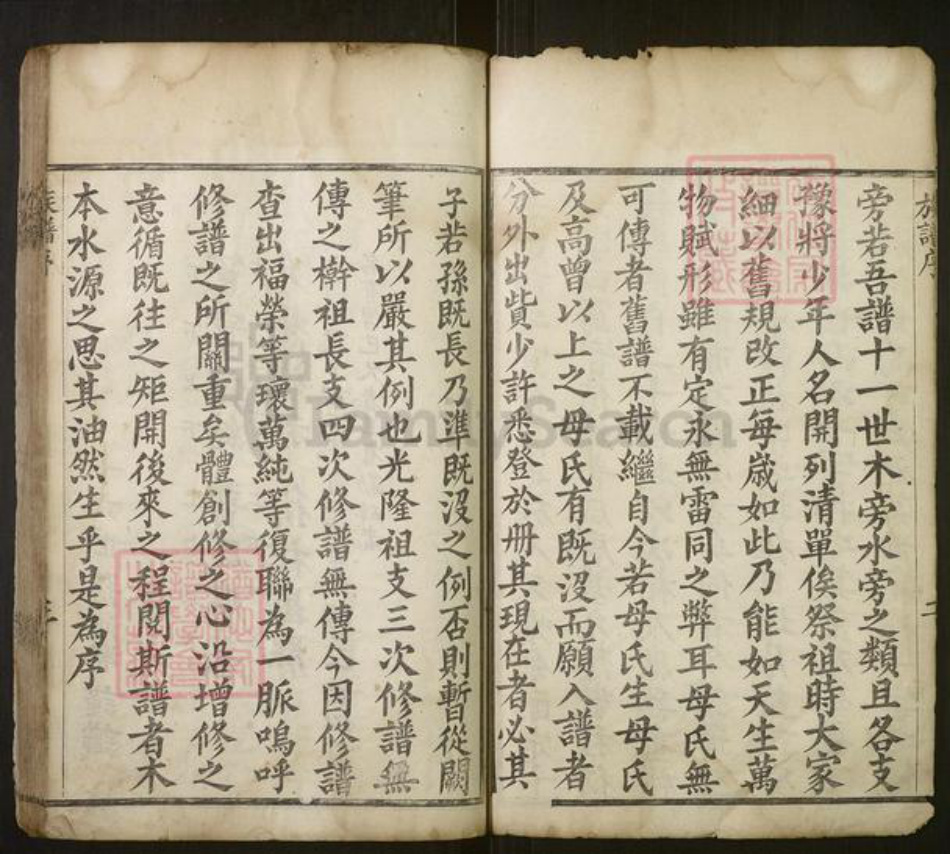 族譜序
二
旁若吾譜十一世木旁水旁之類且各支
豫將少年人名開列清單俟祭祖時大家
細以舊規改正每歲如此乃能如天生萬
物賦形雖有定永無雷同之弊耳母氏無
可傳者舊譜不載繼自今若母氏生母氏
及高曾以上之母氏有既沒而願入譜者
分外出貲少許悉登於册其現在者必其
子若孫既長乃準既沒之例否則暫從闕
筆所以嚴其例也光隆祖支三次修譜無
傳之榦祖長支四次修譜無傳今因修譜
查出福榮等瓌萬純等復聯為一脈嗚呼
修譜之所關重矣體創修之心沿增修之
意循既往之矩開後來之程閱斯譜者木
本水源之思其油然生乎是為序
族譜序
FamilySearch